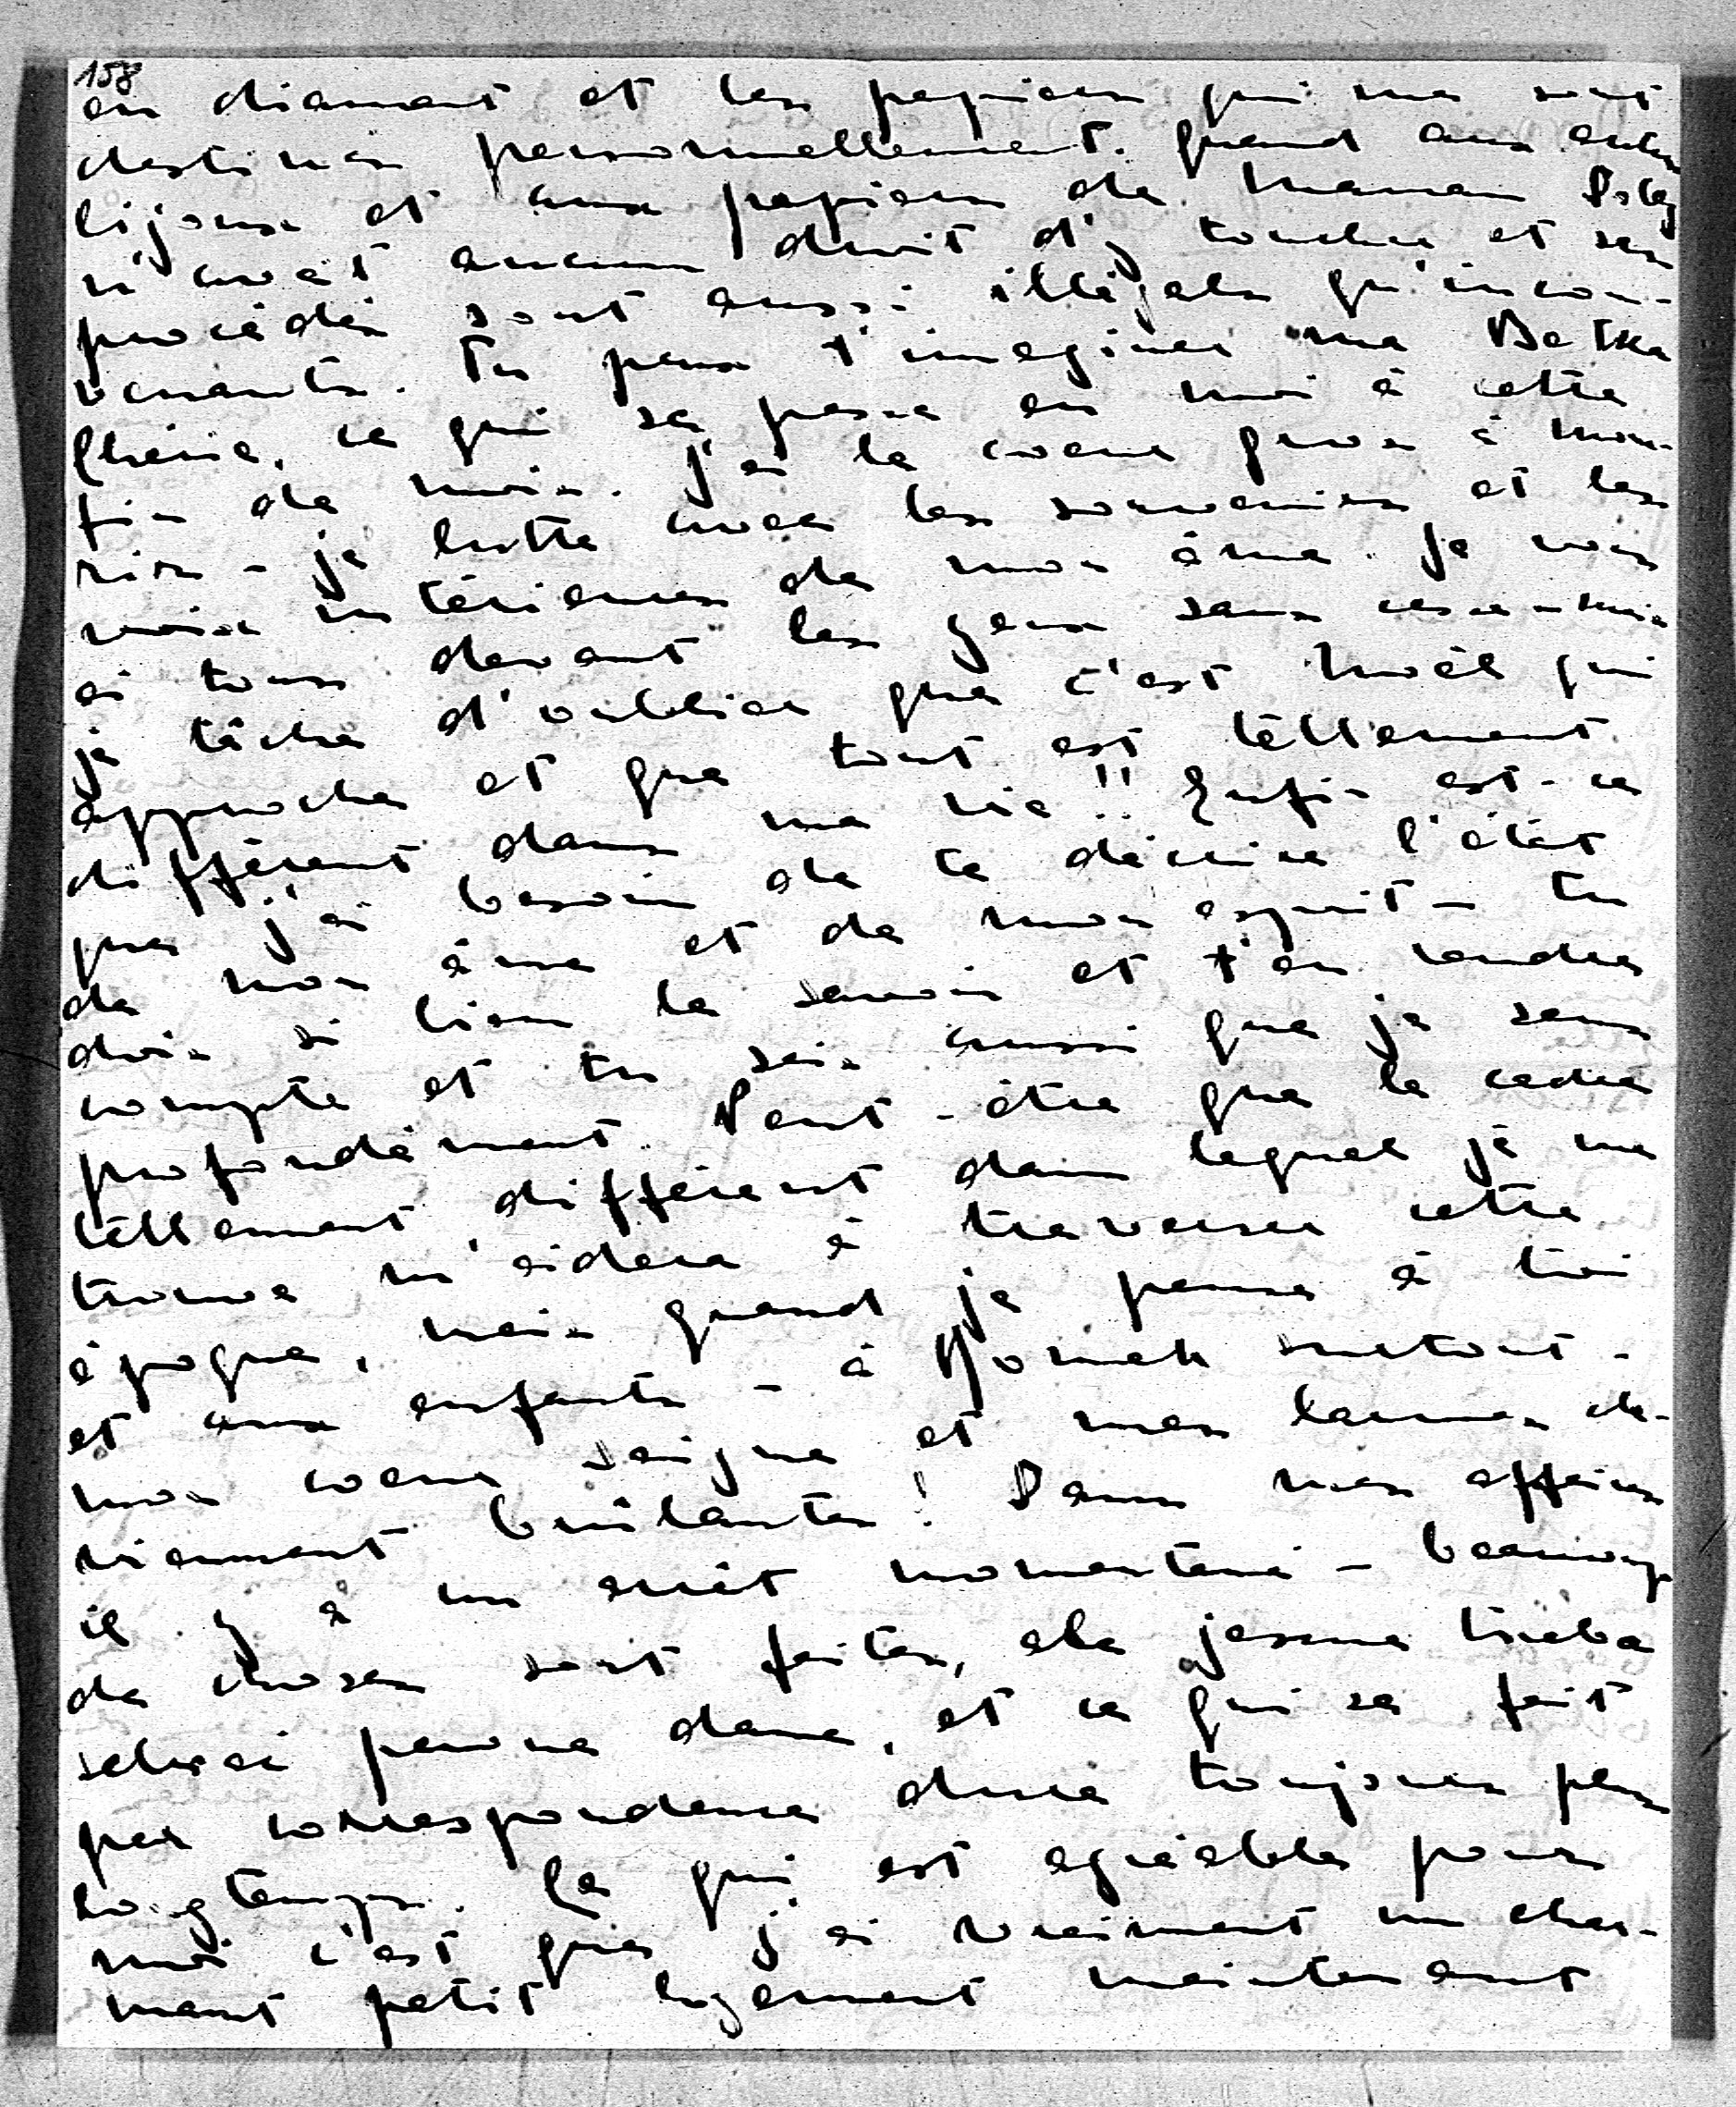 158
en diamant et les papiers qui me sont
destinés personnellement. quand aux autres
bijoux et aux papiers de Maman Doly
n'avait aucun droit d'y toucher et ses
procédés sont aussi illégals qu'incon-
venants. Tu peux t'imaginer ma Betka
chérie, ce qui se passe en moi à cette
fin de mois. J'ai le coeur gros à mou-
rir - je lutte avec les souvenirs et les
voix intérieures de mon âme. Je vous
ai tous devant les yeux sans cesse - mais
je tâche d'oublier que c'est Noël qui
approche et que tout est tèllement
différent dans ma vie!! Enfin est-ce
que j'ai besoin de te décrire l'état
de mon âme et de mon esprit - tu
dois si bien le savoir et t'en rendre
compte et tu sais aussi que je sens
profondément. Peut-être que le cadre
tèllement différent dans lequel je me
trouve m'aidera à traverser cette
époque, mais quand je pense à toi
et aux enfants - à Romek surtout -
mon coeur saigne et mes larmes de-
viennent brûlantes! Dans mes affaires
il y a un arrêt momentané - beaucoup
de choses sont faites, ale jeszcze trzeba
czekać pewne dane, et ce qui se fait
par correspondence dure toujours plus
longtemps. Ce qui est agréable pour
moi c'est que j'ai vraiment un char-
mant petit logement maintenant